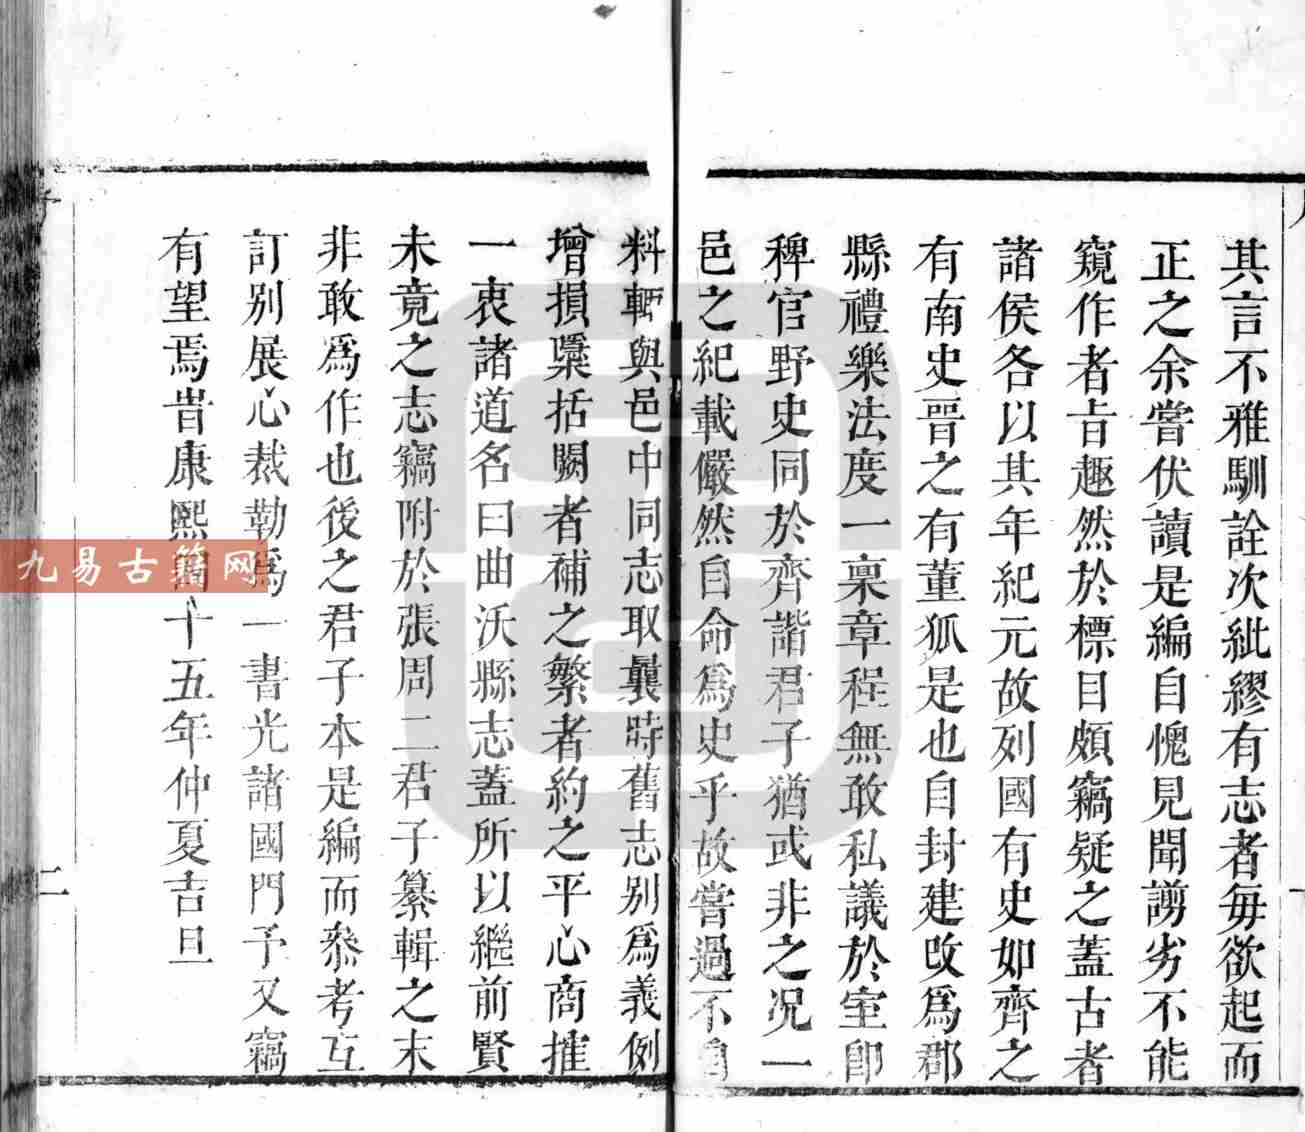 其言不雅馴詮次紕繆有志者每欲起而
正之余嘗伏讀是編自愧見聞謭劣不能
窺作者旨趣然於標目頗竊疑之蓋古者
諸侯各以其年紀元故列國有史如齊之
有南史晉之有董狐是也自封建改爲郡
縣禮樂法度一稟章程無敢私議於室卽
稗官野史同於齊諧君子猶或非之况一
邑之紀載儼然自命爲史乎故嘗過不自
料輒與邑中同志取曩時舊志别爲義例
增損櫽括闕者補之繁者約之平心商搉
一衷諸道名曰曲沃縣志蓋所以繼前賢
未竟之志竊附於張周二君子纂輯之末
非敢爲作也後之君子本是編而叅考互
訂别展心裁勒爲一書光諸國門予又竊
有望焉旹康熙 十五年仲夏吉旦
二
九易古籍网